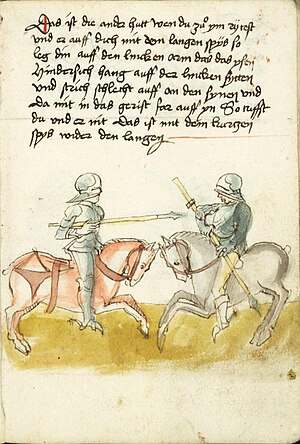 Das ist die ander hutt wen du zů ym rytest
und er auff dich mit dem langen spys so
leg din auff den lincken arm das das ysen
Hindersich hang auff der lincken sytten
und strich schlecht auff an den synen und
da mit in das gerist far auff yn So triffst
du und er nit das ist mit dem kurczen
spys wider den langen